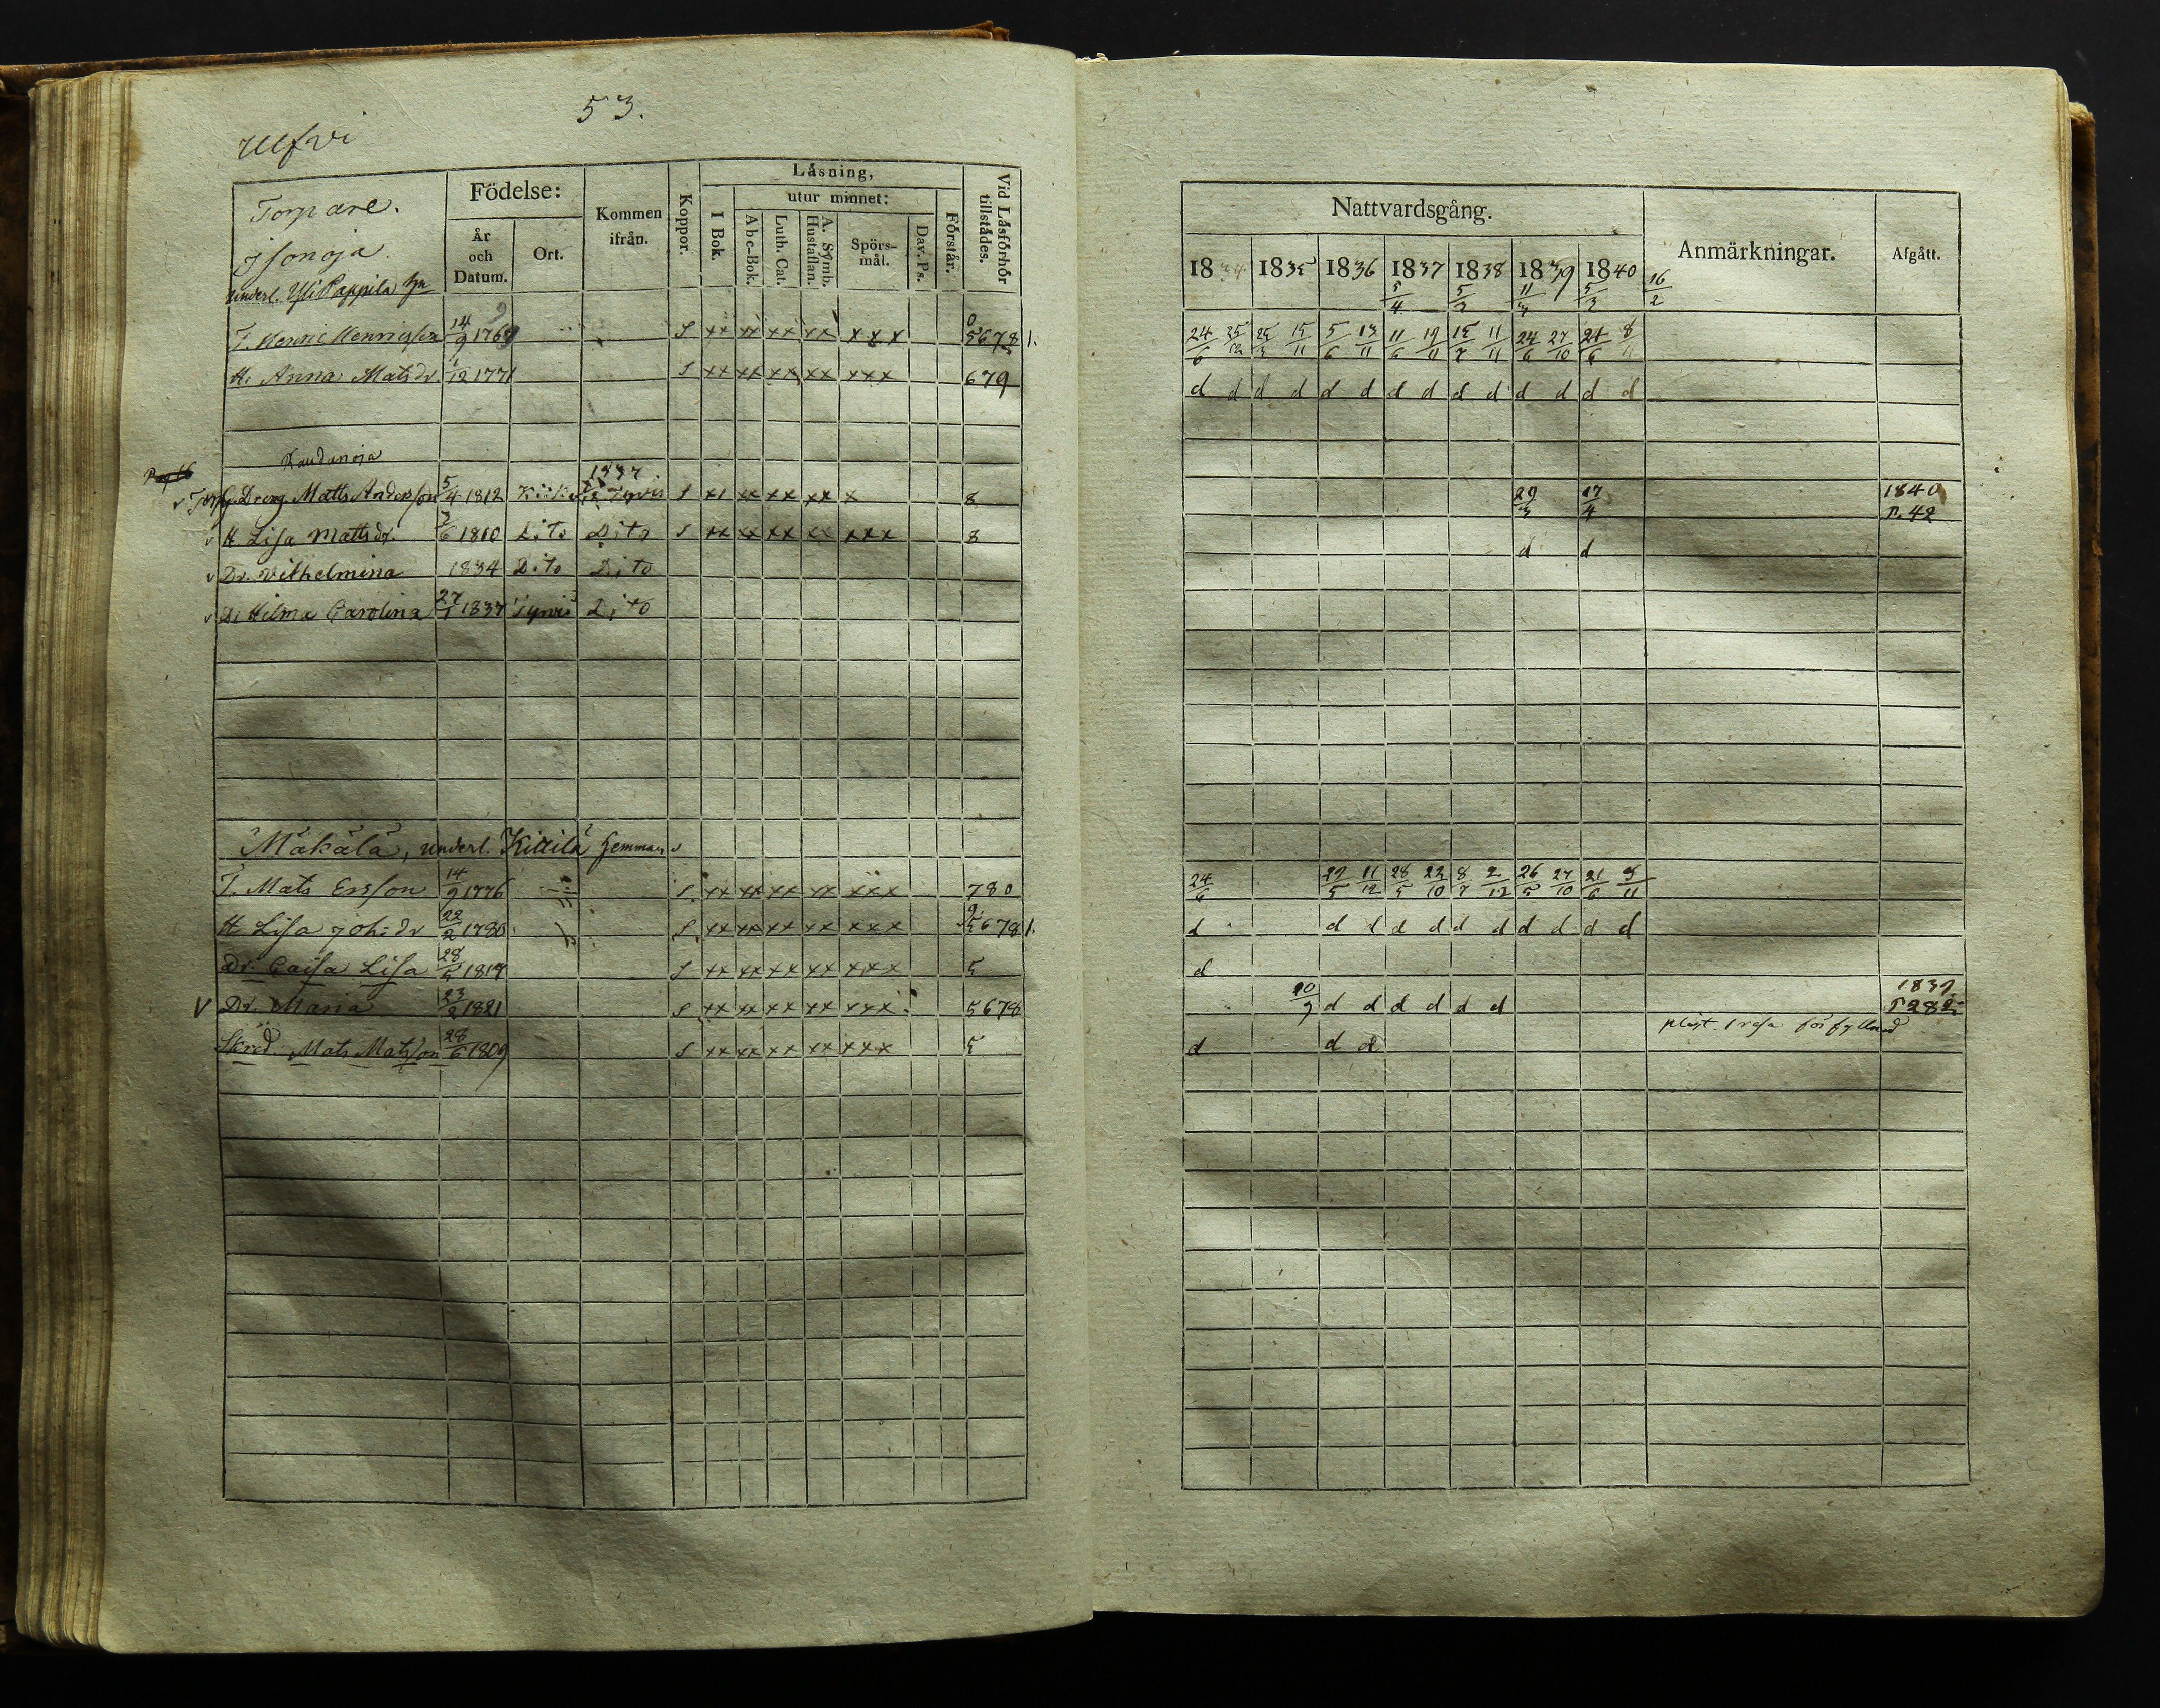 53.
Ulfvi
Torpare.
Isonoja.
underl. Yli Pappila hn
Födelse:
År och Datum.
Ort.
Kommen ifrån.
Koppor.
Läsning,
I Bok.
utur minnet:
Abc-Bok.
Luth. Cat.
A. Symb. Hustaflan.
Spörs-mål.
Dav. Ps.
Förstår.
Vid Läsförhör tillstädes.
T. Henric Henricsson 14/9 1769 S xx xx xx xx xxx 5678 1.
H. Anna Matsdr 12 1771 S xx xx xx xx xxx 679
Kaudanoja
Pag 16
v Dreng Matts Andersson 5/4 1812 1837 Tyrvis S x1 xx xx xx x 8
v H. Lisa Mattsdr. 3/6 1810 Dito Dito S xx xx xx xx xxx 8
v Dr. Vilhelmina 1834 Dito Dito
v Dr. Hilma Carolina 27/1 1837 Tyrvis Dito
Mäkälä, underl. Kittilä hemman
T. Mats Ersson 14/9 1776 S xx xx xx xx xxx 780
H. Lisa Joh:dr 22/2 1780 S xx xx xx xx xxx 5678 1.
Dr. Caisa Lisa 28/5 1819 S xx xx xx xx xxx 5
V Dr. Maria 23/2 1821 S xx xx xx xx xxx 5678
Skräd. Mats Matsson 28/6 1809 S xx xx xx xx xxx 5
Nattvardsgång.
Anmärkningar.
Afgått.
1834 1835 1836 1837 1838 1839 1840
5/4 5/3 11/3 5/3 16/2
24/6 25/12 25/3 15/11 5/6 13/11 11/6 19/11 15/7 11/11 24/6 27/10 24/6 8/11
d d d d d d d d d d d d d d
29/3 17/4 1840 P. 42
d d
24/6 22/5 11/12 28/5 22/10 8/7 2/12 26/5 27/10 21/6 9/11
d d d d d d d d d d d
d
20/9 d d d d d d 1839 P 282
d d d pligt. 1 resa för fyllerd